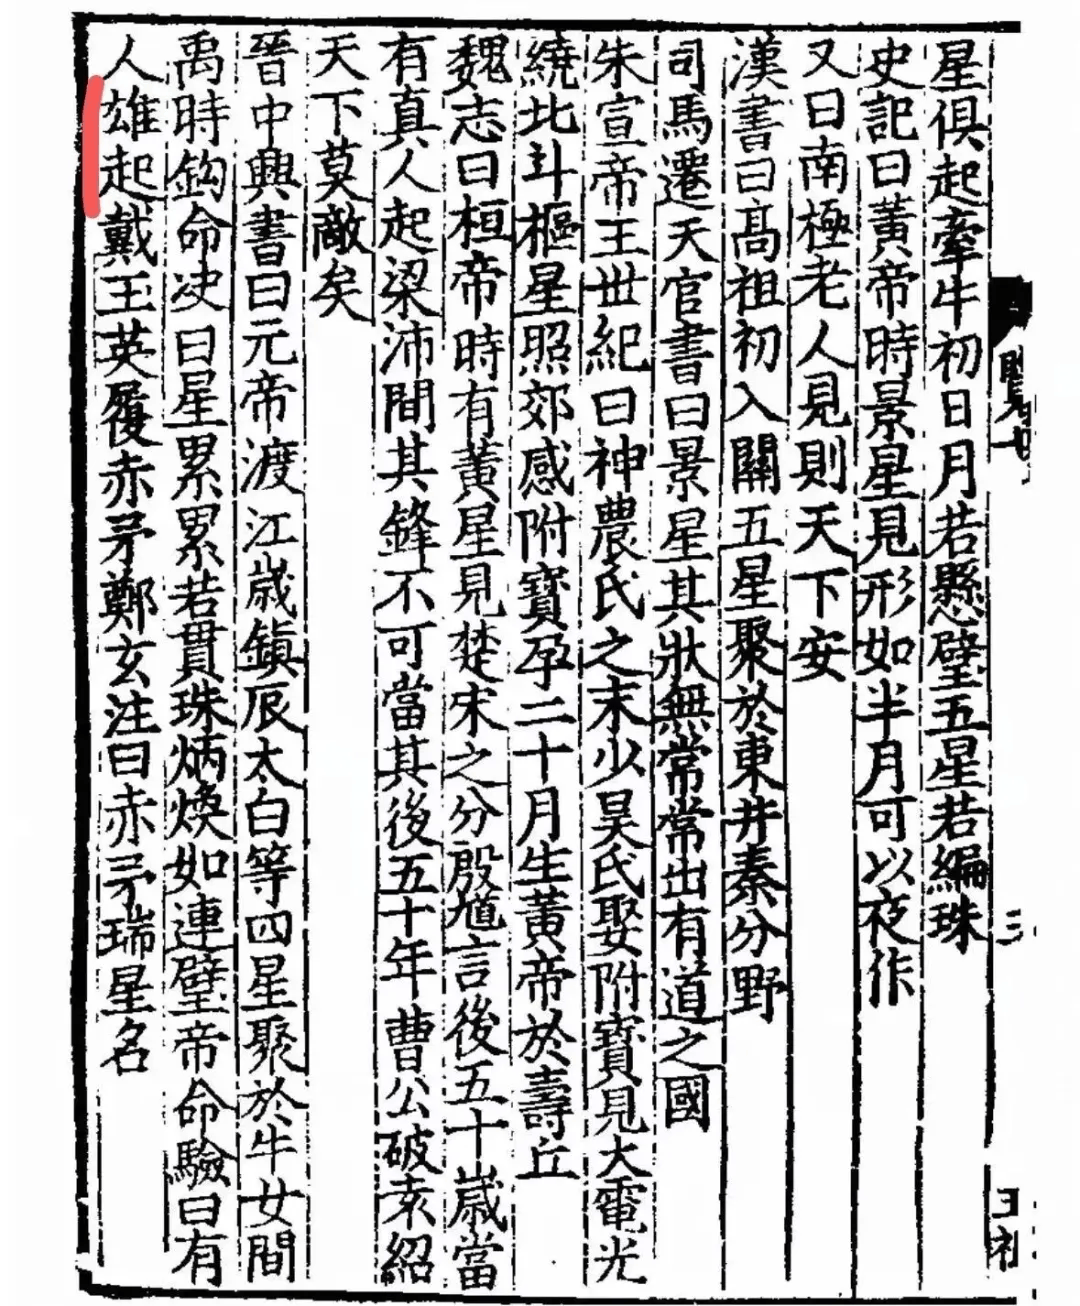 星俱起牽牛初日月若懸璧五星若編珠
史記曰黃帝時景星見形如半月可以夜作
又曰南極老人見則天下安
漢書曰髙祖初入關五星聚於東井秦分野
司馬遷天官書曰景星其狀無常常出有道之國
朱宣帝王世紀曰神農氏之末少昊氏娶附寶見大電光
繞北斗樞星照郊感附寶孕二十月生黃帝於壽丘
魏志曰桓帝時有黃星見楚宋之分殷馗言後五十歲當
有真人起梁沛間其鋒不可當其後五十年曹公破袁紹
天下莫敵矣
晉中興書曰元帝渡江歲鎮辰太白等四星聚於牛女間
禹時鈎命決曰星累累若貫珠炳煥如連璧帝命驗曰有
人雄起戴玉英履赤矛鄭玄注曰赤矛瑞星名
覽七
三
王